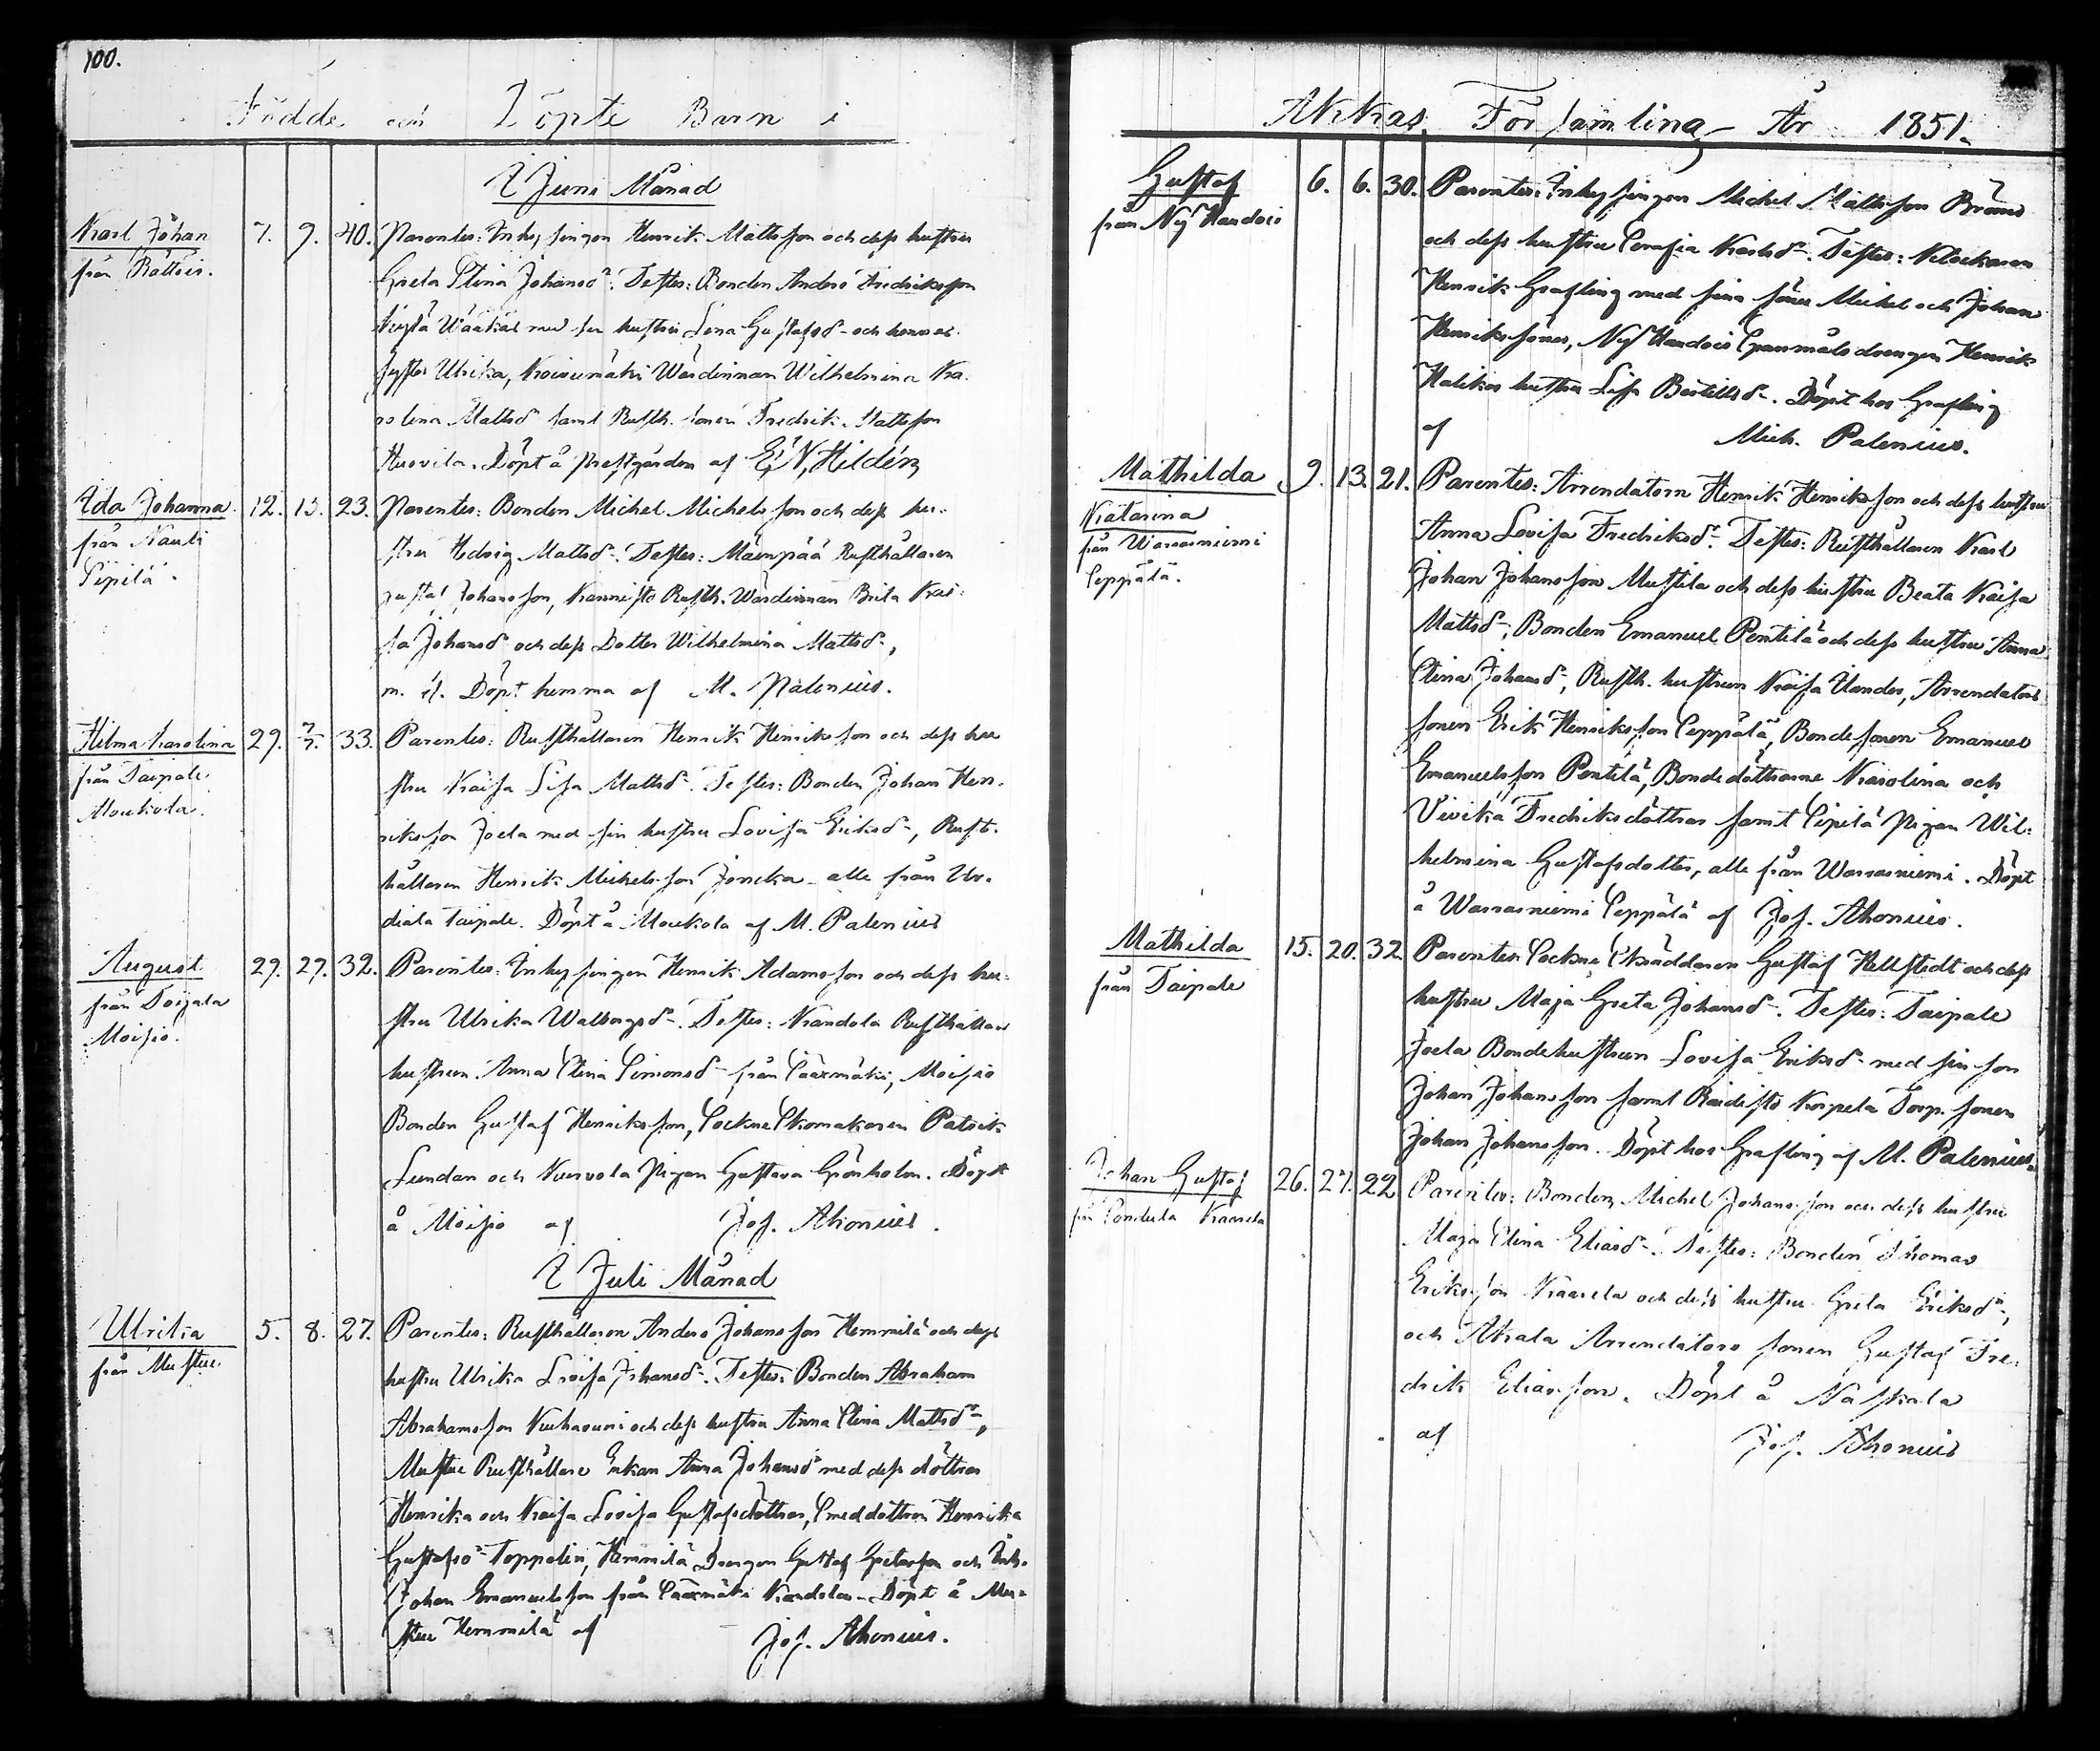 100.
Födde och Döpte Barn i
I Juni Månad
Karl Johan 7. 9. 40. Parentes: Inhysingen Henrik Mattsson och dess hustru
från Rättöis. Greta Stina Johansdr. Testes: Bonden Anders Fredriksson
Wääkäs med sin hustru Lena Gustafsdr och hennes
syster Ulrika, Wärdinnan Wilhelmina Ka-
rolina Mattsdr samt Rusth. sonen Fredrik Mattsson
Huovila. Döpt å prestgården af E. N. Hildén
Ida Johanna 12. 13. 23. Parentes: Bonden Michel Michelsson och dess hu-
från Kauli stru Hedvig Mattsdr. Testes: Mäenpää Rusthållaren
Pipilä. Gustaf Johansson, Kannisto Rusth. Wärdinnan Brita Kai-
sa Johansdr och dess Dotter Wilhelmina Mattsdr,
m. fl. Döpt hemma af M. Palenius.
Hilma Karolina 29. 7/7. 33. Parentes: Rusthållaren Henrik Henriksson och dess hu
från Taipale stru Kaisa Lisa Mattsdr. Testes: Bonden Johan Hen-
Moukola. riksson Joela med sin hustru Lovisa Eriksdr, Rust-
hållaren Henrik Michelsson Joneka alle från Ur-
diala Taipale. Döpt å Moukola af M. Palenius
August 29. 29. 32. Parentes: Inhysingen Henrik Adamsson och dess hu-
från Toijala stru Ulrika Walborgsdr. Testes: Kandola Rusthållare
Moisio. hustrun Anna Stina Simonsdr från Sääxmäki, Moisio
Bonden Gustaf Henriksson, Sockne Skomakaren Patrik
Lundan och Kurvola Pigan Gustava Grönholm. Döpt
å Moisio af Jos. Ahonius.
I Juli Månad
Ulrika 5. 8. 27. Parentes: Rusthållaren Anders Johansson Hemmilä och dess
från Mustue. hustru Ulrika Lovisa Johansdr. Testes: Bonden Abraham
Abrahamsson Kuuhasuni och dess hustru Anna Stina Mattsdr,
Mustue Rusthållare Enkan Anna Johansdr med dess döttrar
Henrika och Kaisa Lovisa Gustafsdöttrar, Smeddottren Henrika
Gustafsdr Toppelin, Hemmilä Drengen Gustaf Gretasson och Inh.
Johan Emanuelsson från Sääxmäki Kandolan. Döpt å Mu-
stue Hemmilä af Jos. Ahonius.
Akkas Församling År 1851.
Gustaf 6. 6. 30. Parentes: Inhysingen Michel Mattsson Bränd
från Ny Handois och dess hustru Serafia Karlsdr. Testes: Klockaren
Henrik Grafling med sina söner Michel och Johan
Henrikssöner, Ny Handois Spanmålsdrengen Henrik
Halikas hustru Lisa Bertillsdr. Döpt hos Grafling
af Mich. Palenius.
Mathilda 9. 13. 21. Parentes: Arrendatorn Henrik Henriksson och dess hustru
Katarina Anna Lovisa Fredriksdr. Testes: Rusthållaren Karl
från Warrasniemi Johan Johansson Mustila och dess hustru Beata Kaisa
Seppälä. Mattsdr, Bonden Emanuel Pentilä och dess hustru Anna
Stina Johansdr, Rusth. hustrun Kaisa Uander, Arrendators
sonen Erik Henriksson Seppälä, Bondesonen Emanuel
Emanuelsson Pentilä, Bondedöttrarne Karolina och
Vivika Fredriksdöttrar samt Sipilä Pigan Wil-
helmina Gustafsdotter, alle från Warrasniemi. Döpt
å Warrasniemi Seppälä af Jos. Ahonius.
Mathilda 15. 20. 32. Parentes: Sockne Skräddaren Gustaf Hellstedt och dess
från Taipale hustru Maja Greta Johansdr. Testes: Taipale
Joela Bondehustrun Lovisa Eriksdr med sin son
Johan Johansson samt Raidisto Korpela Torp. sonen
Johan Johansson. Döpt hos Grafling af M. Palenius.
Johan Gustaf 26. 27. 22. Parentes: Bonden Michel Johansson och dess hustru
från Sondula Kaarela Maja Stina Eliasdr. Testes: Bonden Thomas
Eriksson Kaarela och dess hustru Greta Eriksdr,
och Akala Arrendators sonen Gustaf Fre-
drik Eliasson. Döpt å Naskala
af Jos. Ahonius